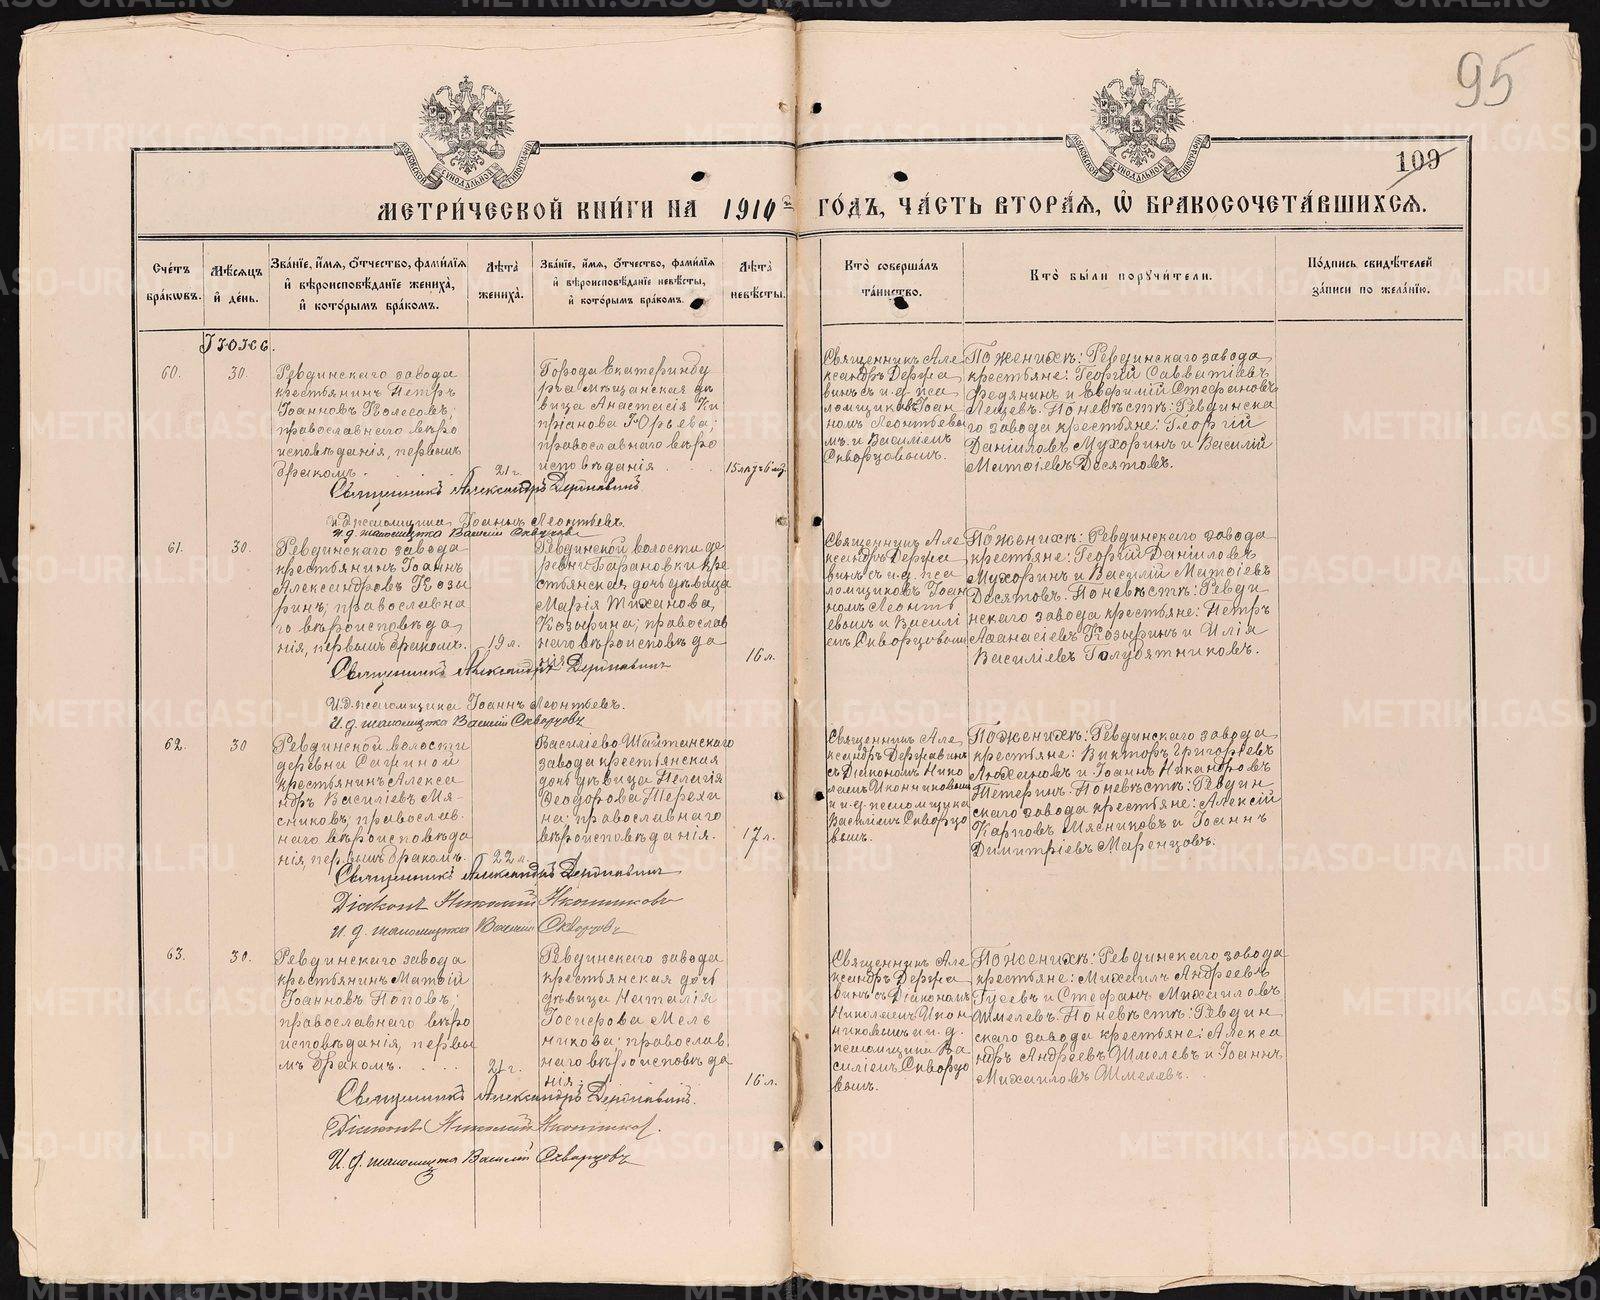 95
109
МОСКОВСКОЙ СѴНОДАЛЬНОЙ ТИПОГРАФІИ
МОСКОВСКОЙ СѴНОДАЛЬНОЙ ТИПОГРАФІИ
МЕТРИ́ЧЕСКОЙ КНИ́ГИ НА 1910 ГО́ДЪ, ЧА́СТЬ ВТОРА́Я, Ѿ БРАКОСОЧЕТА́ВШИХСЯ.
Сче́тъ бра́кѡвъ.
Мѣ́сяцъ и́ де́нь.
Зва́ніе, и́мя, ѻ́тчество, фами́лія и́ вѣроисповѣ́даніе жениха̀, и́ кото́рымъ бра́комъ.
Лѣ́та жениха̀.
Зва́ніе, и́мя, ѻ́тчество, фами́лія и́ вѣроисповѣ́даніе невѣ́сты, и́ кото́рымъ бра́комъ.
Лѣ́та невѣ́сты.
Кто̀ соверша́лъ та́инство.
Кто̀ бы́ли поручи́тели.
По́дпись свидѣ́телей за́писи по жела́нію.
Іюнь.
60.
30.
Ревдинскаго завода
крестьянинъ Петръ
Іоанновъ Колесовъ;
православнаго вѣро
исповѣданія, первымъ
бракомъ.
21 г.
Города Екатеринбу
рга мѣщанская дѣ
вица Анастасія Ки
пріанова Юрьева;
православнаго вѣро
исповѣданія
15 лѣтъ 6 мѣс.
Священникъ Але
ксандръ Держа
винъ съ и.д. пса
ломщиковъ Іоан
номъ Леонтьевы
мъ и Василіемъ
Скворцовымъ.
По женихѣ: Ревдинскаго завода
крестьяне: Георгій Савватіевъ
Федянинъ и Евфимій Стефановъ
Лещевъ. По невѣстѣ: Ревдинска
го завода крестьяне: Георгій
Даніиловъ Мухоринъ и Василій
Матѳіевъ Десятовъ.
Священникъ Александръ Державинъ
И.д. псаломщика Іоаннъ Леонтьевъ.
И.д. псаломщика Василій Скворцовъ
61.
30.
Ревдинскаго завода
крестьянинъ Іоаннъ
Александровъ Козы
ринъ; православна
го вѣроисповѣда
нія, первымъ бракомъ.
19 л.
Ревдинской волости де
ревни Барановки кре
стьянская дочь дѣвица
Марія Тиханова
Козырина; православ
наго вѣроисповѣда
нія
16 л.
Священникъ Але
ксандръ Держа
винъ съ и.д. пса
ломщиковъ Іоан
номъ Леонть
евымъ и Василі
емъ Скворцовымъ
По женихѣ: Ревдинскаго завода
крестьяне: Георгій Даніиловъ
Мухоринъ и Василій Матѳіевъ
Десятовъ. По невѣстѣ: Ревди
нскаго завода крестьяне: Петръ
Аѳанасіевъ Козыринъ и Илія
Василіевъ Голубятниковъ.
Священникъ Александръ Державинъ
И.д. псаломщика Іоаннъ Леонтьевъ.
И.д. псаломщика Василій Скворцовъ
62.
30
Ревдинской волости
деревни Сажиной
крестьянинъ Алекса
ндръ Василіевъ Мя-
сниковъ; православ
наго вѣроисповѣда
нія, первымъ бракомъ.
22 л.
Василіево Шайтанскаго
завода крестьянская
дочь дѣвица Пелагія
Ѳеодорова Терехи
на; православнаго
вѣроисповѣданія.
17 л.
Священникъ Але
ксандръ Державинъ
съ Діакономъ Нико
лаемъ Иконниковымъ
и и.д. псаломщика
Василіемъ Скворцо
вымъ.
По женихѣ: Ревдинскаго завода
крестьяне: Викторъ Григоріевъ
и Іоаннъ Никандровъ
Тетеринъ. По невѣстѣ: Ревдин
скаго завода крестьяне: Алексій
Карповъ Мясниковъ и Іоаннъ
Димитріевъ Маренцовъ.
Священникъ Александръ Державинъ
Діаконъ Николай Иконниковъ
И.д. псаломщика Василій Скворцовъ
63.
30.
Ревдинскаго завода
крестьянинъ Матѳій
Іоанновъ Поповъ;
православнаго вѣро
исповѣданія, первы
мъ бракомъ.
21 г.
Ревдинскаго завода
крестьянская дочь
дѣвица Наталія
Іосифова Мель
никова; православ
наго вѣроисповѣда
нія;
16 л.
Священникъ Але
ксандръ Держа
винъ съ Діакономъ
Николаемъ Икон
никовымъ и и.д.
псаломщика Ва
силіемъ Скворцо
вымъ.
По женихѣ: Ревдинскаго завода
крестьяне: Михаилъ Андреевъ
Гусевъ и Стефанъ Михаиловъ
Шмелевъ. По невѣстѣ: Ревдин
скаго завода крестьяне: Алекса
ндръ Андреевъ Шмелевъ и Іоаннъ
Михаиловъ Шмелевъ.
Священникъ Александръ Державинъ.
Діаконъ Николай Иконниковъ.
И.д. псаломщика Василій Скворцовъ
METRIKI.GASO-URAL.RU